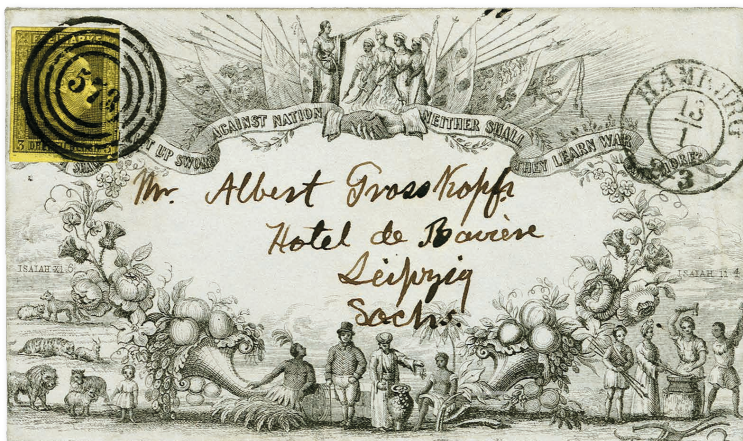 FREIMARKE
573
3
3
HAMBURG
13
1
3
UP SWORD AGAINST NATION NEITHER SHALL THEY LEARN WAR
Mr. Albert Grosskopf
Hotel de Bavière
Leipzig
Sachs.
ISAIAH XI. 6
ISAIAH II. 4